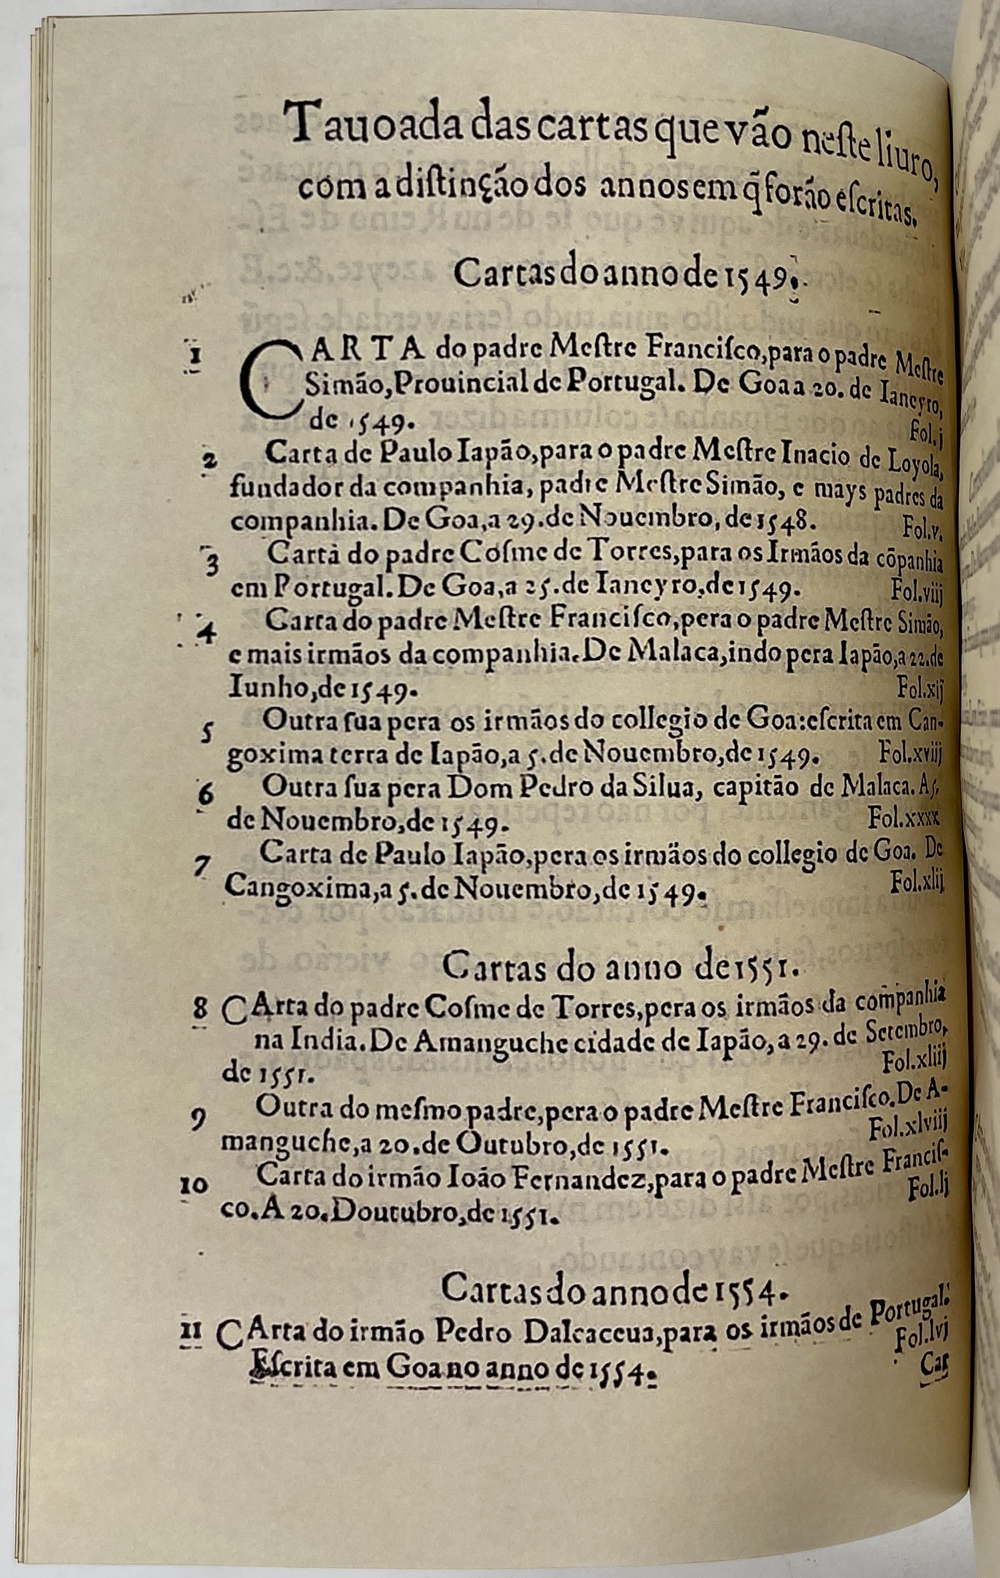 Tauoada das cartas que vão neſte liuro,
com a diſtinção dos annos em q̃ forão eſcritas.
Cartas do anno de 1549.
1 CARTA do padre Meſtre Franciſco, para o padre Meſtre
Simão, Prouincial de Portugal. De Goa a 20. de Ianeyro,
de 1549. Fol.j
2 Carta de Paulo Iapão, para o padre Meſtre Inacio de Loyola,
fundador da companhia, padre Meſtre Simão, e mays padres da
companhia. De Goa, a 29. de Nouembro, de 1548. Fol.v.
3 Carta do padre Coſme de Torres, para os Irmãos da cõpanhia
em Portugal. De Goa, a 25. de Ianeyro, de 1549. Fol.viij
4 Carta do padre Meſtre Franciſco, pera o padre Meſtre Simão,
e mais irmãos da companhia. De Malaca, indo pera Iapão, a 22. de
Iunho, de 1549. Fol.xij
5 Outra ſua pera os irmãos do collegio de Goa: eſcrita em Can-
goxima terra de Iapão, a 5. de Nouembro, de 1549. Fol.xviij
6 Outra ſua pera Dom Pedro da Silua, capitão de Malaca. A 5.
de Nouembro, de 1549. Fol.xxxx
7 Carta de Paulo Iapão, pera os irmãos do collegio de Goa. De
Cangoxima, a 5. de Nouembro, de 1549. Fol.xlij
Cartas do anno de 1551.
8 CArta do padre Coſme de Torres, pera os irmãos da companhia
na India. De Amanguche cidade de Iapão, a 29. de Setembro,
de 1551. Fol.xliij
9 Outra do meſmo padre, pera o padre Meſtre Franciſco. De A-
manguche, a 20. de Outubro, de 1551. Fol.xlviij
10 Carta do irmão Ioão Fernandez, para o padre Meſtre Franciſ-
co. A 20. Doutubro, de 1551. Fol.lj
Cartas do anno de 1554.
11 CArta do irmão Pedro Dalcaceua, para os irmãos de Portugal.
Eſcrita em Goa no anno de 1554. Fol.lvj
Car